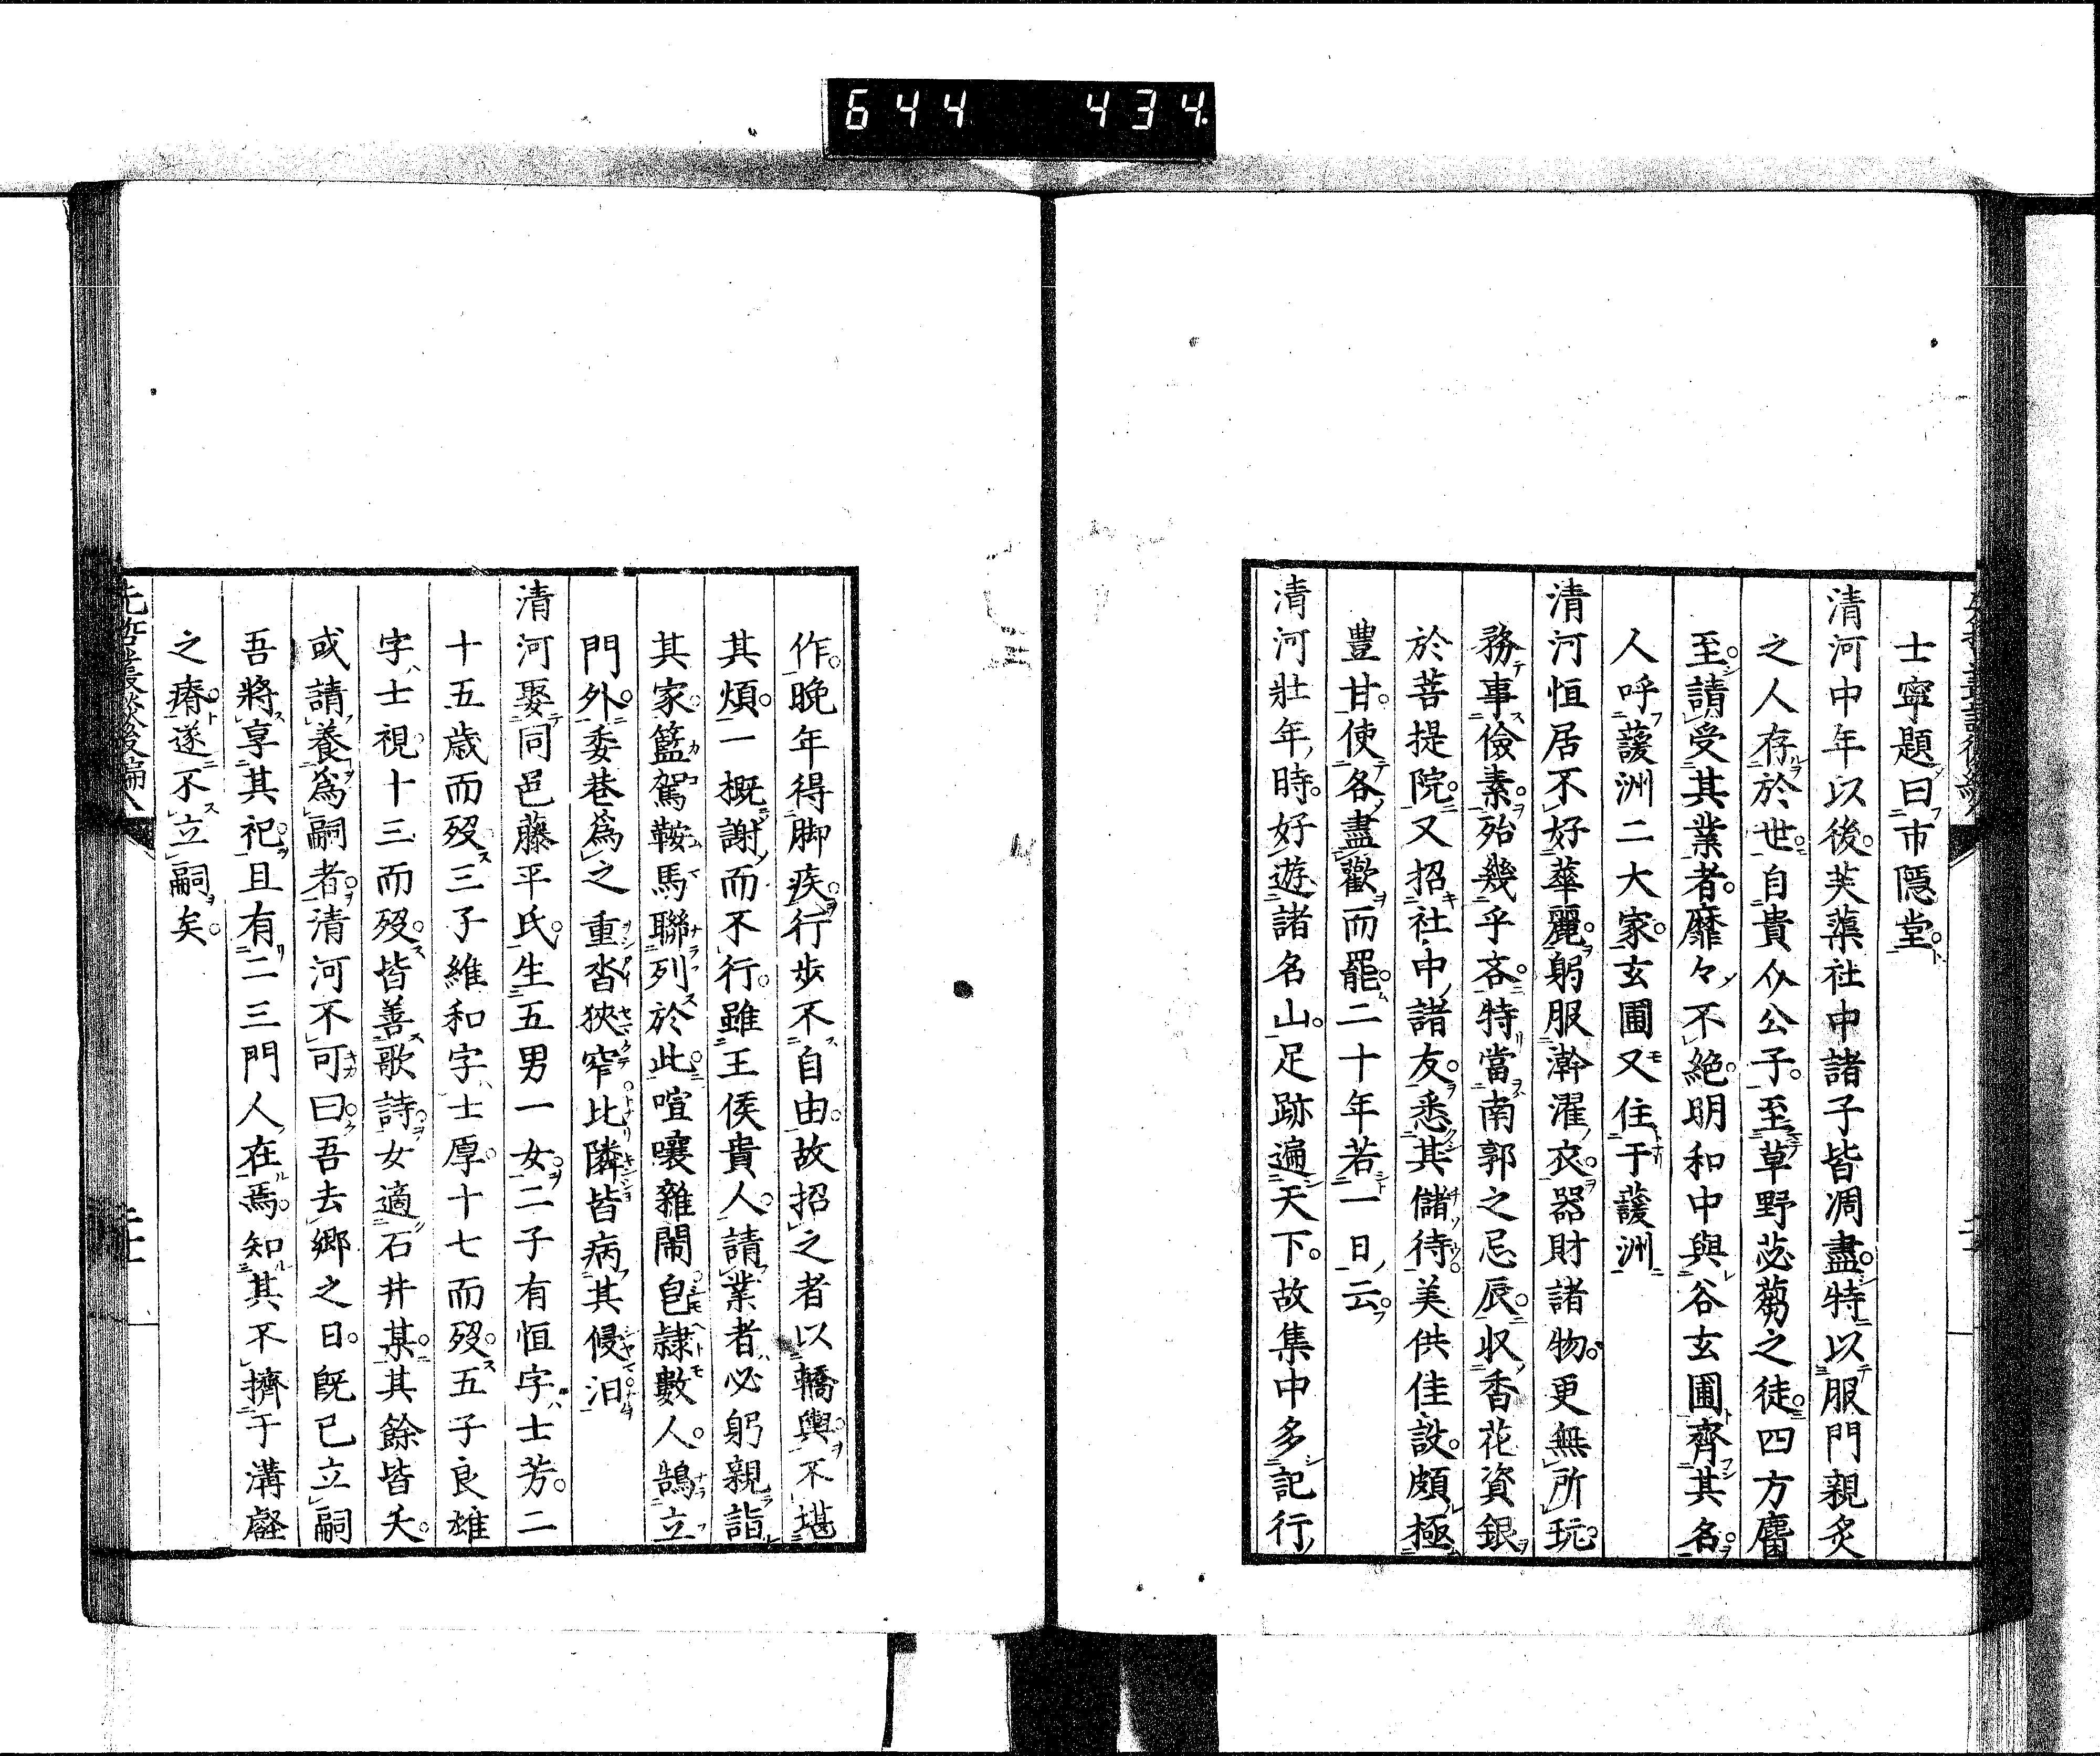 644 434
士寧題曰市隱堂
清河中年以後芙蕖社中諸子皆凋盡特以服門親炙
之人存於世自貴介公子至草野苾蒭之徒四方麕
至請受其業者靡々不絕明和中與谷玄圃齊其名
人呼護洲二大家玄圃又住于護洲
清河恒居不好華麗躬服澣濯衣器財諸物更無所玩
務事儉素殆幾乎吝特當南郭之忌辰収香花資銀
於菩提院又招社中諸友悉其儲待美供佳設頗極
豊甘使各盡歡而罷二十年若一日云
清河壯年時好遊諸名山足跡遍天下故集中多記行
作晚年得脚疾行步不自由故招之者以轎輿不堪
其煩一概謝而不行雖王侯貴人請業者必躬親詣
其家籃駕鞍馬聯列於此喧嚷雜鬧皀隷數人鵠立
門外委巷爲之重沓狹窄比隣皆病其侵汨
清河娶同邑藤平氏生五男一女二子有恒字士芳二
十五歲而歿三子維和字士厚十七而歿五子良雄
字士視十三而歿皆善歌詩女適石井某其餘皆夭
或請養爲嗣者清河不可曰吾去鄉之日既已立嗣
吾將享其祀且有二三門人在焉知其不擠于溝壑
之瘠遂不立嗣矣
先哲叢談後編